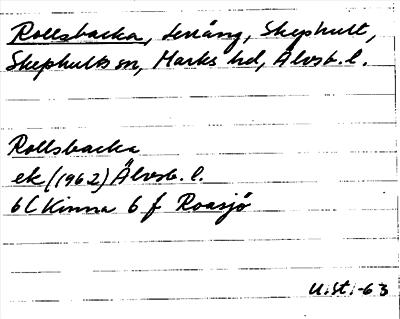 Rollsbacka, terräng, Skephult,
Skephults sn, Marks hd, Älvsb. l.
Rollsbacka
ek (1962) Älvsb. l.
6C Kinna 6 f Roasjö
U.St. -63